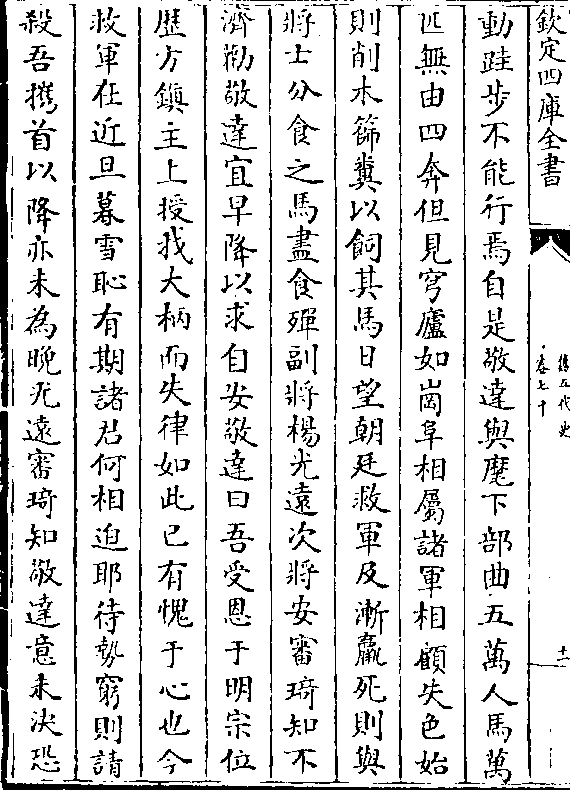 欽定四庫全書
舊五代史
卷七十
十一
動跬步不能行焉自是敬達與麾下部曲五萬人馬萬
匹無由四奔但見穹廬如崗阜相屬諸軍相顧失色始
則削木篩糞以飼其馬日望朝廷救軍及漸羸死則與
將士分食之馬盡食殫副將楊光遠次將安審琦知不
濟勸敬達宜早降以求自安敬達曰吾受恩于明宗位
歷方鎮主上授我大柄而失律如此已有愧于心也今
救軍在近旦暮雪恥有期諸君何相迫耶待勢窮則請
殺吾攜首以降亦未為晚光遠審琦知敬達意未決恐